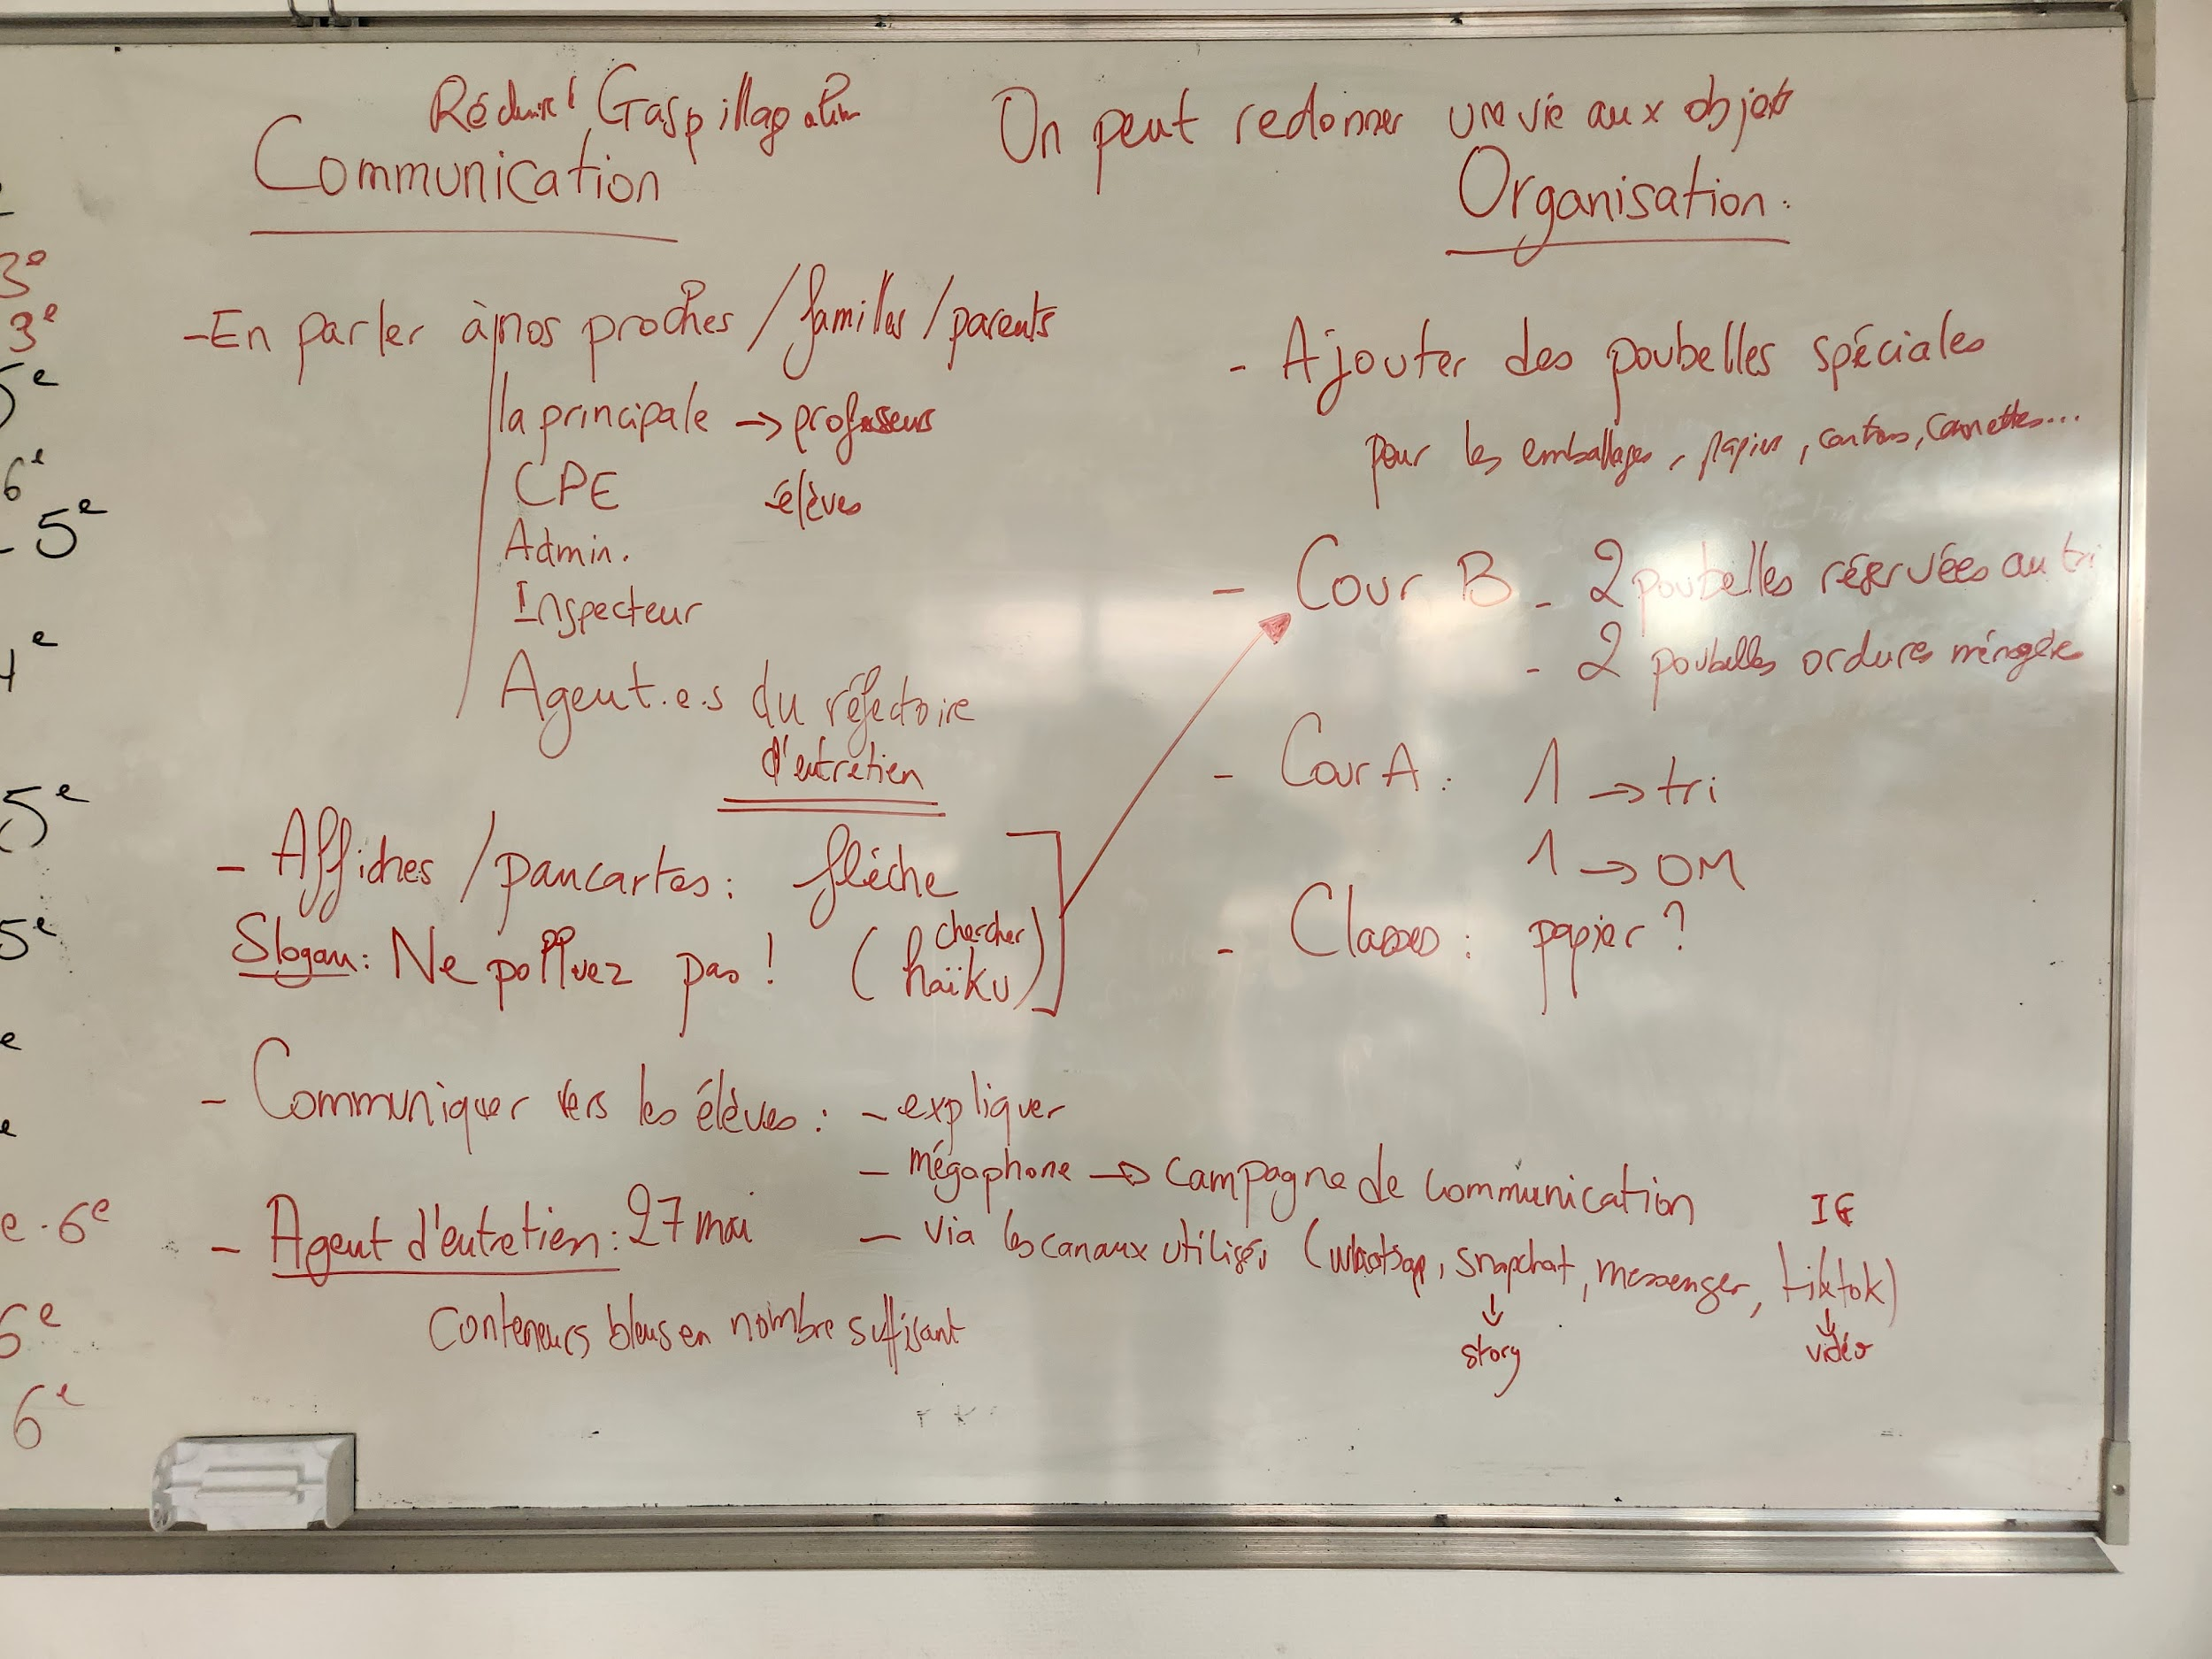 Réduire Gaspillage alim
On peut redonner une vie aux objets
Communication
- En parler à nos proches / familles / parents
la principale → professeurs
CPE élèves
Admin.
Inspecteur
Agent.e.s du réfectoire
d'entretien
- Affiches / pancartes : flèche
Slogan : Ne polluez pas ! (chercher haïku)
- Communiquer vers les élèves : - expliquer
- mégaphone → campagne de communication
- via les canaux utilisés (whatsap, snapchat, messenger, tiktok)
IG
story
vidéo
- Agent d'entretien : 27 mai
Conteneurs bleus en nombre suffisant
Organisation :
- Ajouter des poubelles spéciales
pour les emballages, papiers, cartons, cannettes...
- Cour B - 2 poubelles réservées au tri
- 2 poubelles ordures ménagères
- Cour A : 1 → tri
1 → OM
- Classes : papier ?
3e
3e
5e
6e
- 5e
4e
5e
5e
e
e
e - 6e
6e
6e